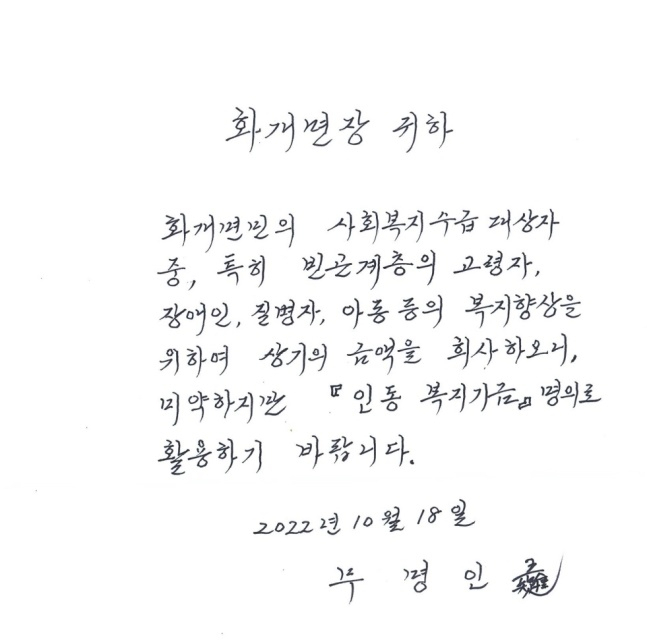 화개면장 귀하
화개면민의 사회복지수급 대상자
중, 특히 빈곤계층의 고령자,
장애인, 질병자, 아동 등의 복지향상을
위하여 상기의 금액을 희사하오니,
미약하지만 『인동 복지기금』 명의로
활용하기 바랍니다.
2022년 10월 18일
무 명 인